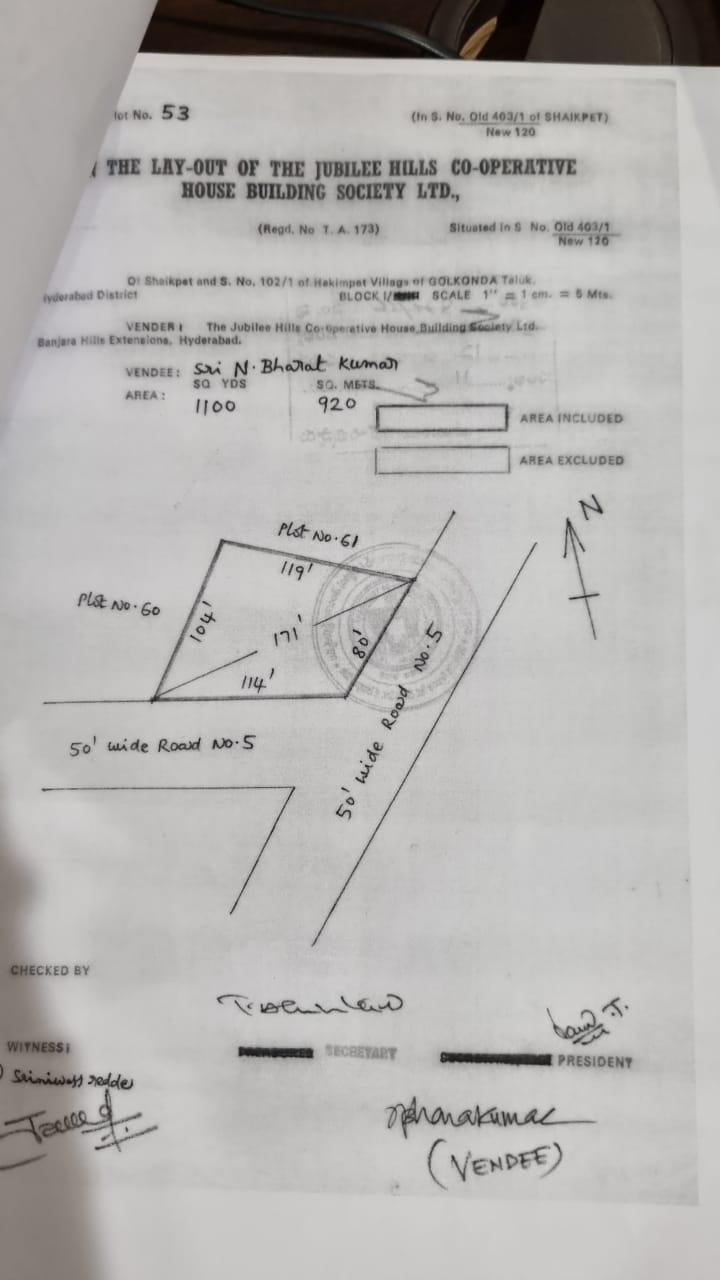 lot No. 53
(In S. No. Old 403/1 of SHAIKPET)
New 120
THE LAY-OUT OF THE JUBILEE HILLS CO-OPERATIVE
HOUSE BUILDING SOCIETY LTD.,
(Regd. No T. A. 173)
Situated in S No. Old 403/1
New 120
Of Shaikpet and S. No. 102/1 of Hakimpet Village of GOLKONDA Taluk.
yderabad District
BLOCK I/ SCALE 1" = 1 cm. = 5 Mts.
VENDER : The Jubilee Hills Co-operative House Building Society Ltd.
Banjara Hills Extensions, Hyderabad.
VENDEE : Sri N. Bharat Kumar
SQ YDS SQ. METS.
AREA : 1100 920
AREA INCLUDED
AREA EXCLUDED
N
Plot No. 61
119'
Plot No. 60
104'
171'
80'
114'
50' wide Road No. 5
50' wide Road No. 5
CHECKED BY
WITNESS :
SECRETARY
PRESIDENT
(VENDEE)